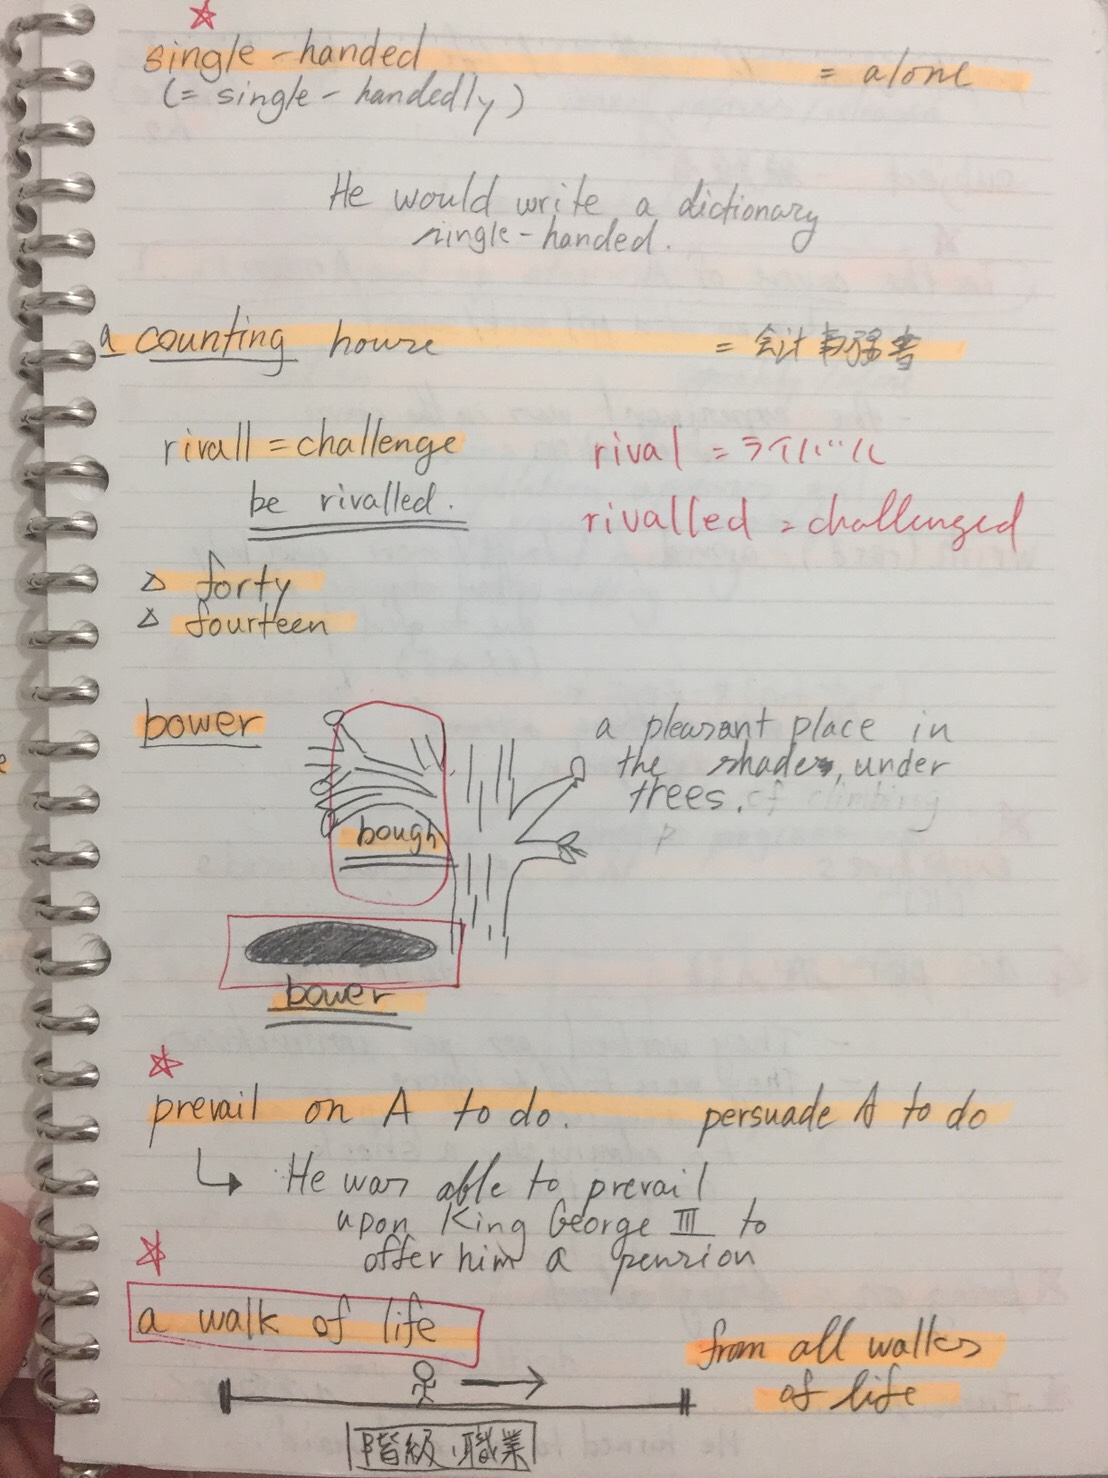 single-handed = alone
(= single-handedly)
He would write a dictionary
single-handed.
a counting house = 会計事務書
rivall = challenge
rival = ライバル
be rivalled.
rivalled = challenged
△ forty
△ fourteen
bower
a pleasant place in
the shade, under
trees. of climbing
p
bough
bower
prevail on A to do. persuade A to do
↳ He was able to prevail
upon King George III to
offer him a pension
a walk of life
from all walks
of life
階級、職業